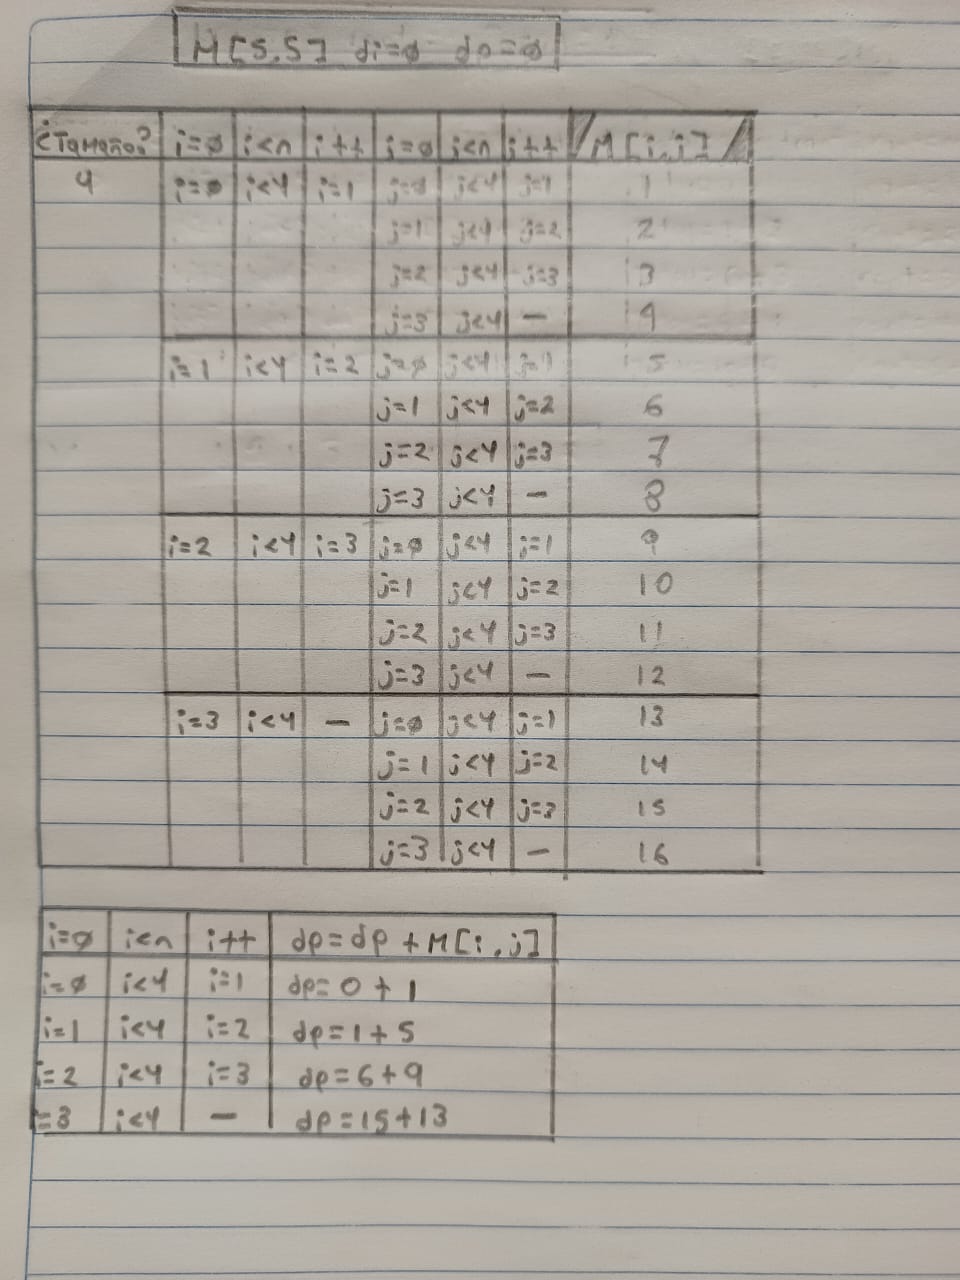 M[5,5] di=ø dp=ø
¿Tamaño? i=ø i<n i++ j=ø j<n j++ M[i,j]
4 i=ø i<4 i=1 j=ø j<4 j=1 1
j=1 j<4 j=2 2
j=2 j<4 j=3 3
j=3 j<4 - 4
i=1 i<4 i=2 j=ø j<4 j=1 5
j=1 j<4 j=2 6
j=2 j<4 j=3 7
j=3 j<4 - 8
i=2 i<4 i=3 j=ø j<4 j=1 9
j=1 j<4 j=2 10
j=2 j<4 j=3 11
j=3 j<4 - 12
i=3 i<4 - j=ø j<4 j=1 13
j=1 j<4 j=2 14
j=2 j<4 j=3 15
j=3 j<4 - 16
i=ø i<n i++ dp=dp+M[i,j]
i=ø i<4 i=1 dp=0+1
i=1 i<4 i=2 dp=1+5
i=2 i<4 i=3 dp=6+9
i=3 i<4 - dp=15+13